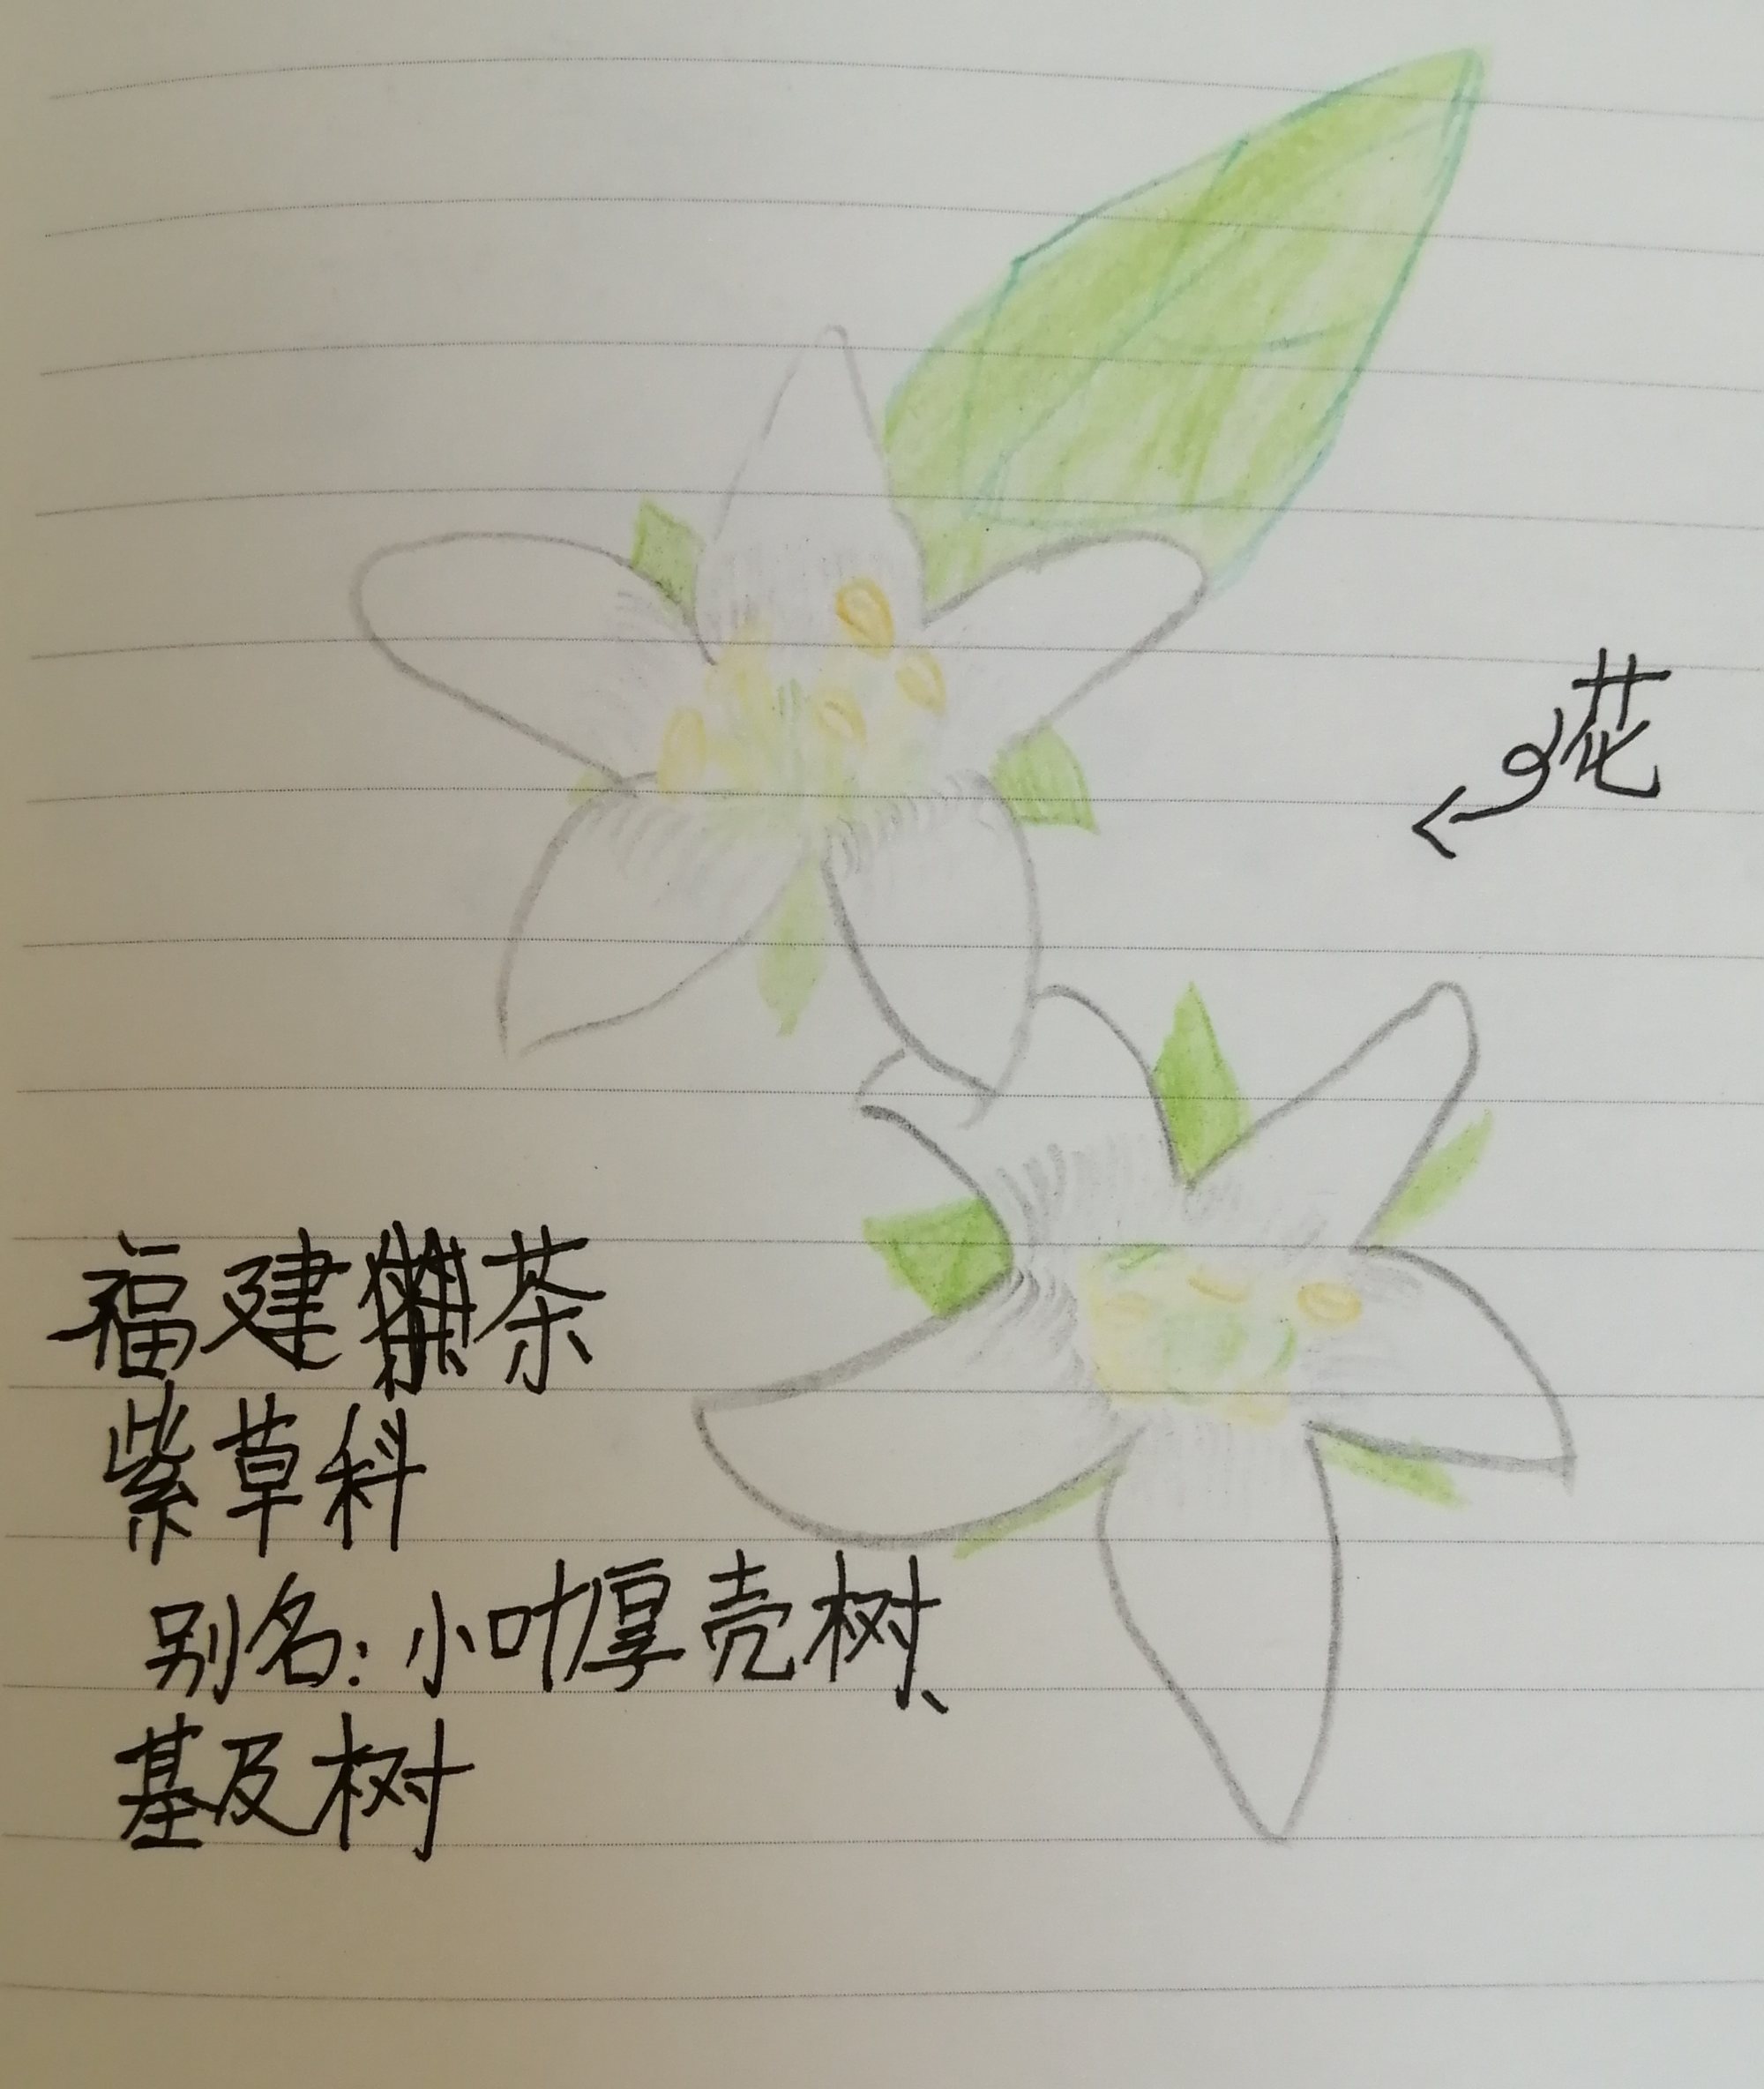 花
福建茶
紫草科
别名:小叶厚壳树、
基及树